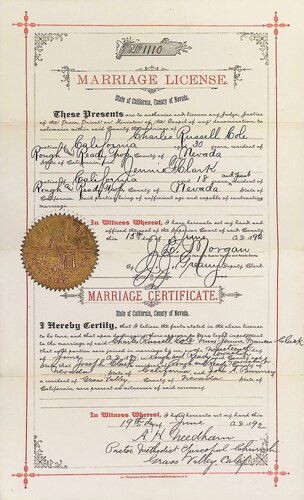 No 1110
MARRIAGE LICENSE.
State of California, County of Nevada.
These Presents are to authorize and license any Judge, Justice
of the Peace, Priest or Minister of the Gospel of any denomination, to
solemnize within said County the marriage of
Charles Russell Cole
native of California aged 30 years, resident of
Rough & Ready Twp County of Nevada
State of California and Jennie Clark
native of California aged 18 and past resident of
Rough & Ready Twp County of Nevada State of
California said parties being of sufficient age and capable of contracting
marriage.
In Witness Whereof, I have hereunto set my hand and
affixed the seal of the Superior Court of said County
this 15th day of June A.D. 1892
Morgan
Deputy Clerk
MARRIAGE CERTIFICATE.
State of California, County of Nevada.
I Hereby Certify, that I believe the facts stated in the above license
to be true, and that upon due inquiry there appears to be no legal impediment
to the marriage of said Charles Russell Cole and Jennie Frances Clark
that said parties were joined in marriage by me on the Nineteenth day of
June A.D. 1892 in Rough and Ready Township
State that Joseph Clark a resident of Rough and Ready Township
County of Nevada State of California and John
a resident of Grass Valley, County of Nevada State of
California, are present as witnesses of said ceremony.
In Witness Whereof, I have hereunto set my hand this
19th day of June A.D. 1892
A. H. Needham
Pastor Methodist Episcopal Church
Grass Valley Calif